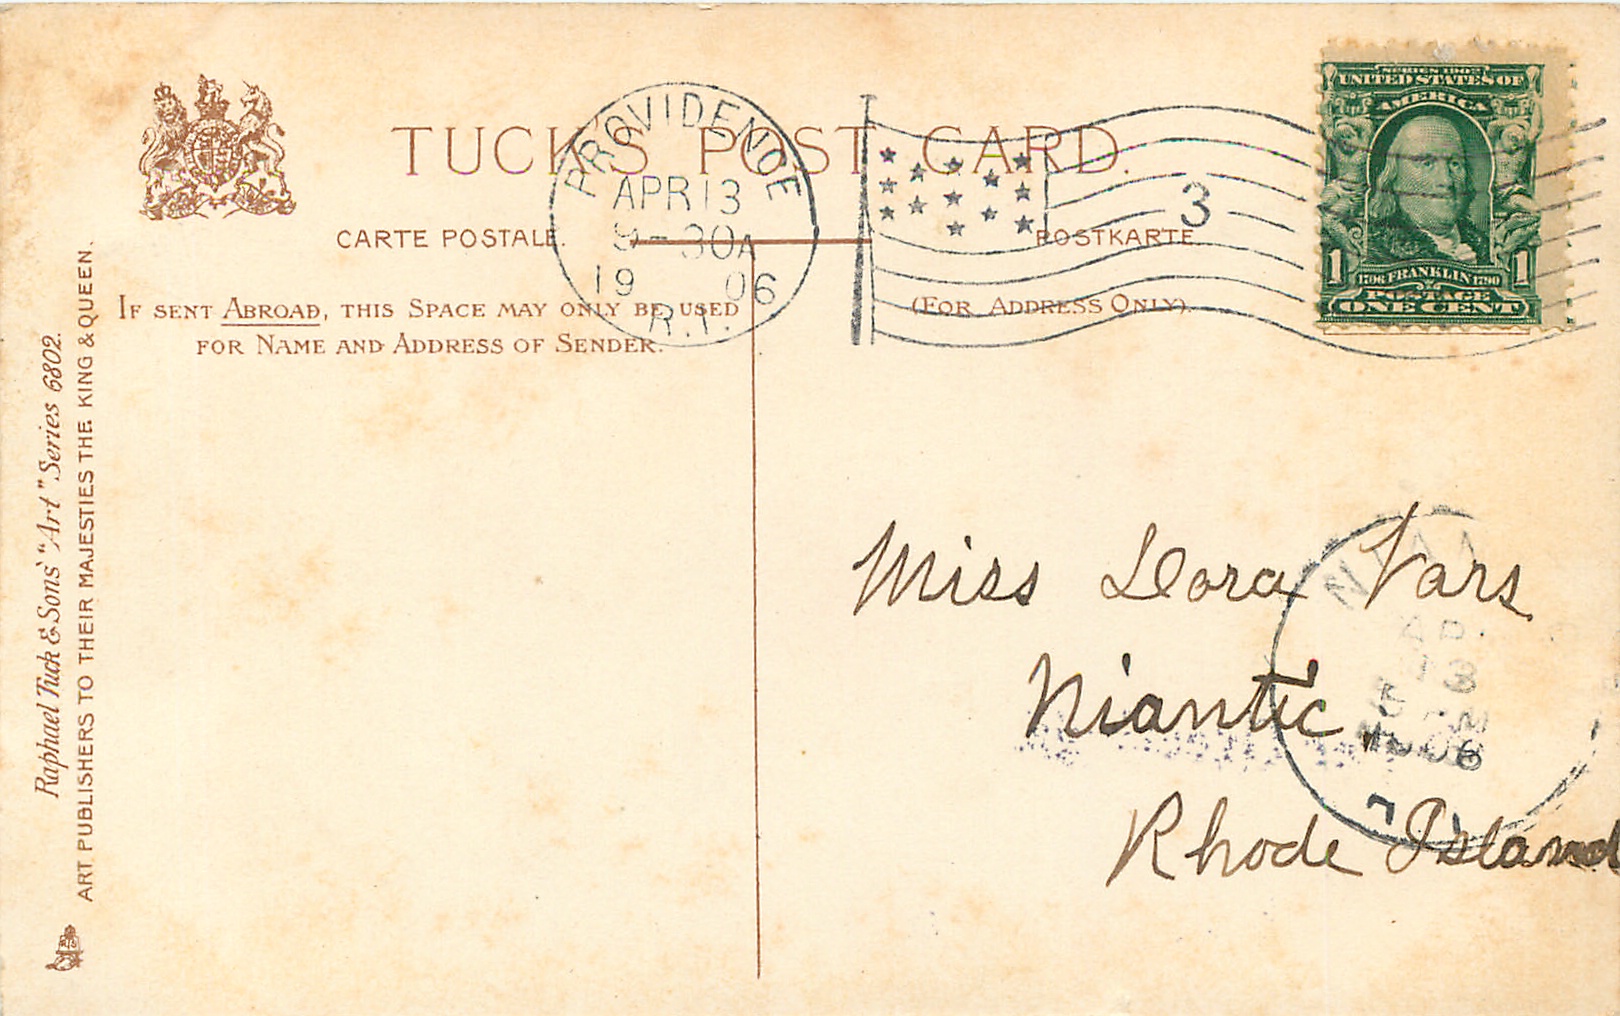 TUCK'S POST CARD.
CARTE POSTALE.
POSTKARTE
IF SENT ABROAD, THIS SPACE MAY ONLY BE USED
FOR NAME AND ADDRESS OF SENDER.
(FOR ADDRESS ONLY).
PROVIDENCE
APR 13
9-30A
19 06
R.I.
3
SERIES 1902
UNITED STATES OF
AMERICA
1 1706 FRANKLIN 1790 1
POSTAGE
ONE CENT
Raphael Tuck & Sons' "Art" Series 6802.
ART PUBLISHERS TO THEIR MAJESTIES THE KING & QUEEN.
Miss Dora Vars
Niantic,
Rhode Island
13